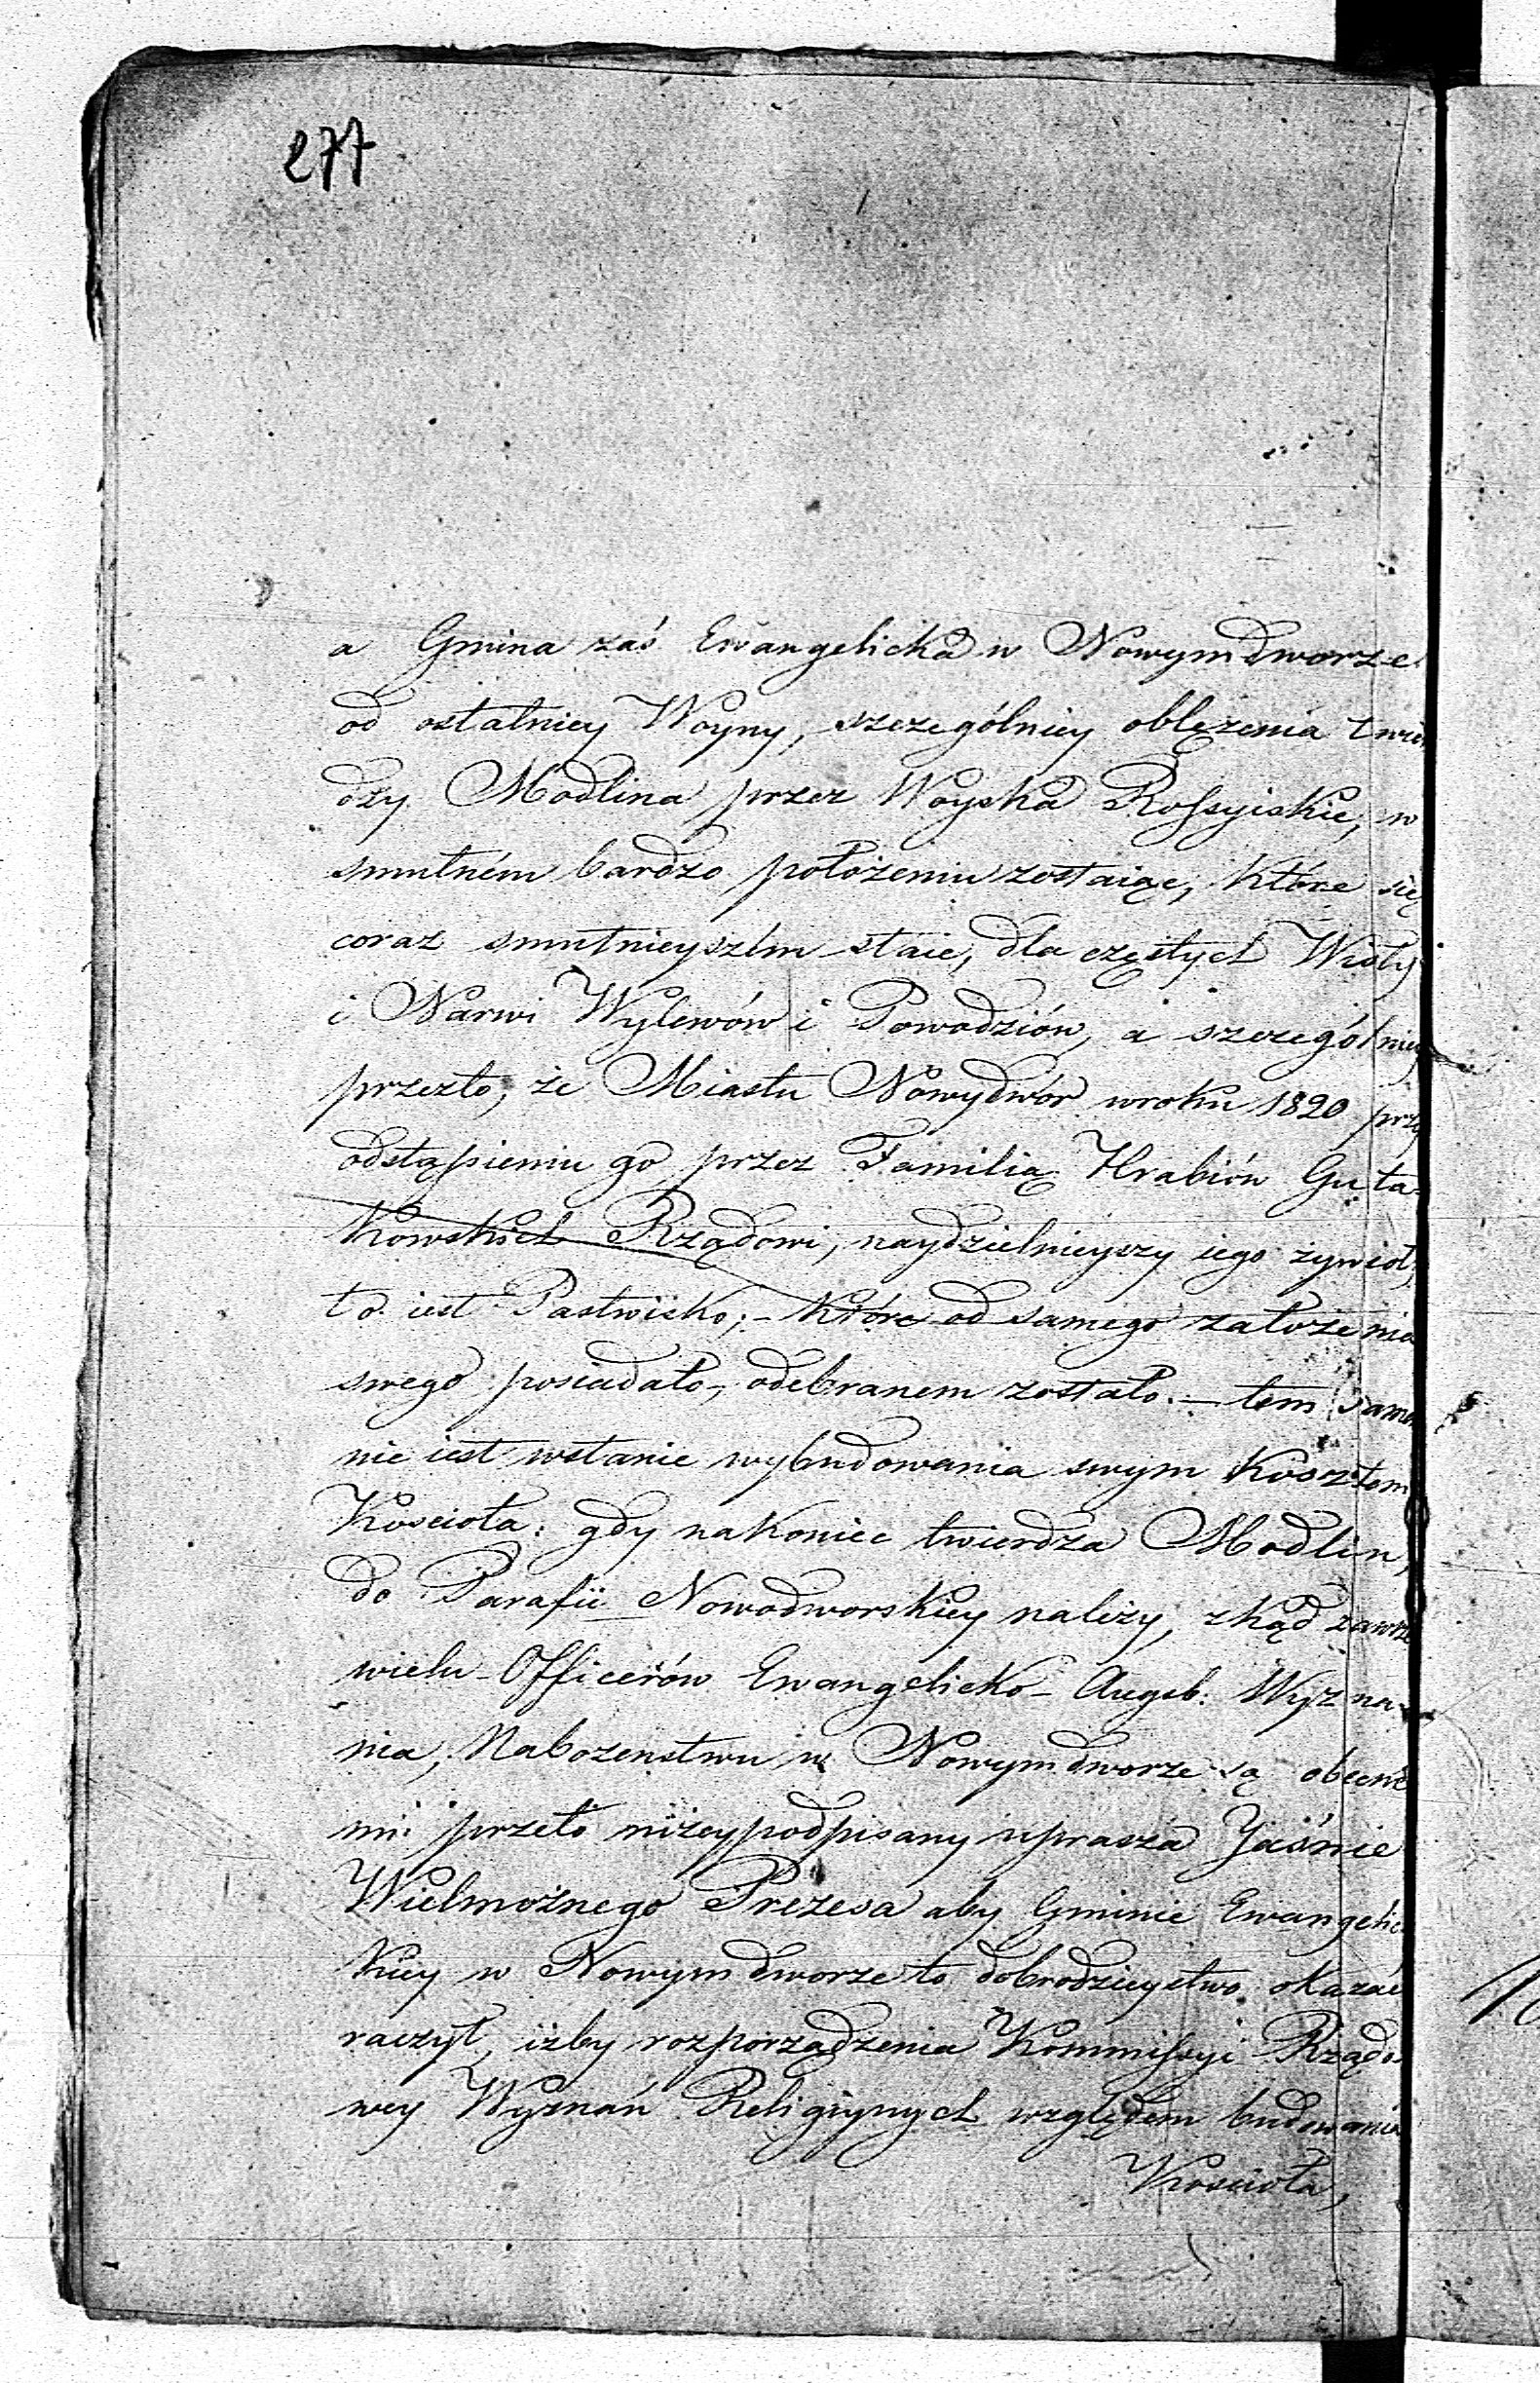 277
a Gmina zaś Ewangelicka w Nowymdworze
od ostatniey Woyny, szczególniey oblężenia twier
dzy Modlina przez Woyska Rossyiskie, w
smutném bardzo położeniu zostaiąc, które się
coraz smutnieyszém staie, dla częstych Wisły
i Narwi Wylewów i Powodziów, a szczególniey
przezto, że Miastu Nowydwór wroku 1820 przy
odstąpieniu go przez Familią Hrabiów Guta-
kowskich Rządowi, naydzielnieyszy iego żywioł,
to iest Pastwisko; - które od samego założenia
swego posiadało, odebranem zostało. - tem samem
nie iest wstanie wybudowania swym Kosztem
Kościoła: gdy nakoniec twierdza Modlin,
do Parafii Nowodworskiey należy, zkąd zawsze
wielu Officerów Ewangelicko- Augsb: Wyzna-
nia, Nabożenstwu w Nowymdworze są obecne
mi przeto niżeypodpisany uprasza Jaśnie
Wielmożnego Prezesa aby Gminie Ewangelic
kiey w Nowymdworze to dobrodzieystwo okazać
raczył, iżby rozporządzenia Kommissyi Rządo-
wey Wyznań Religiynych względem budowania
Kościoła,